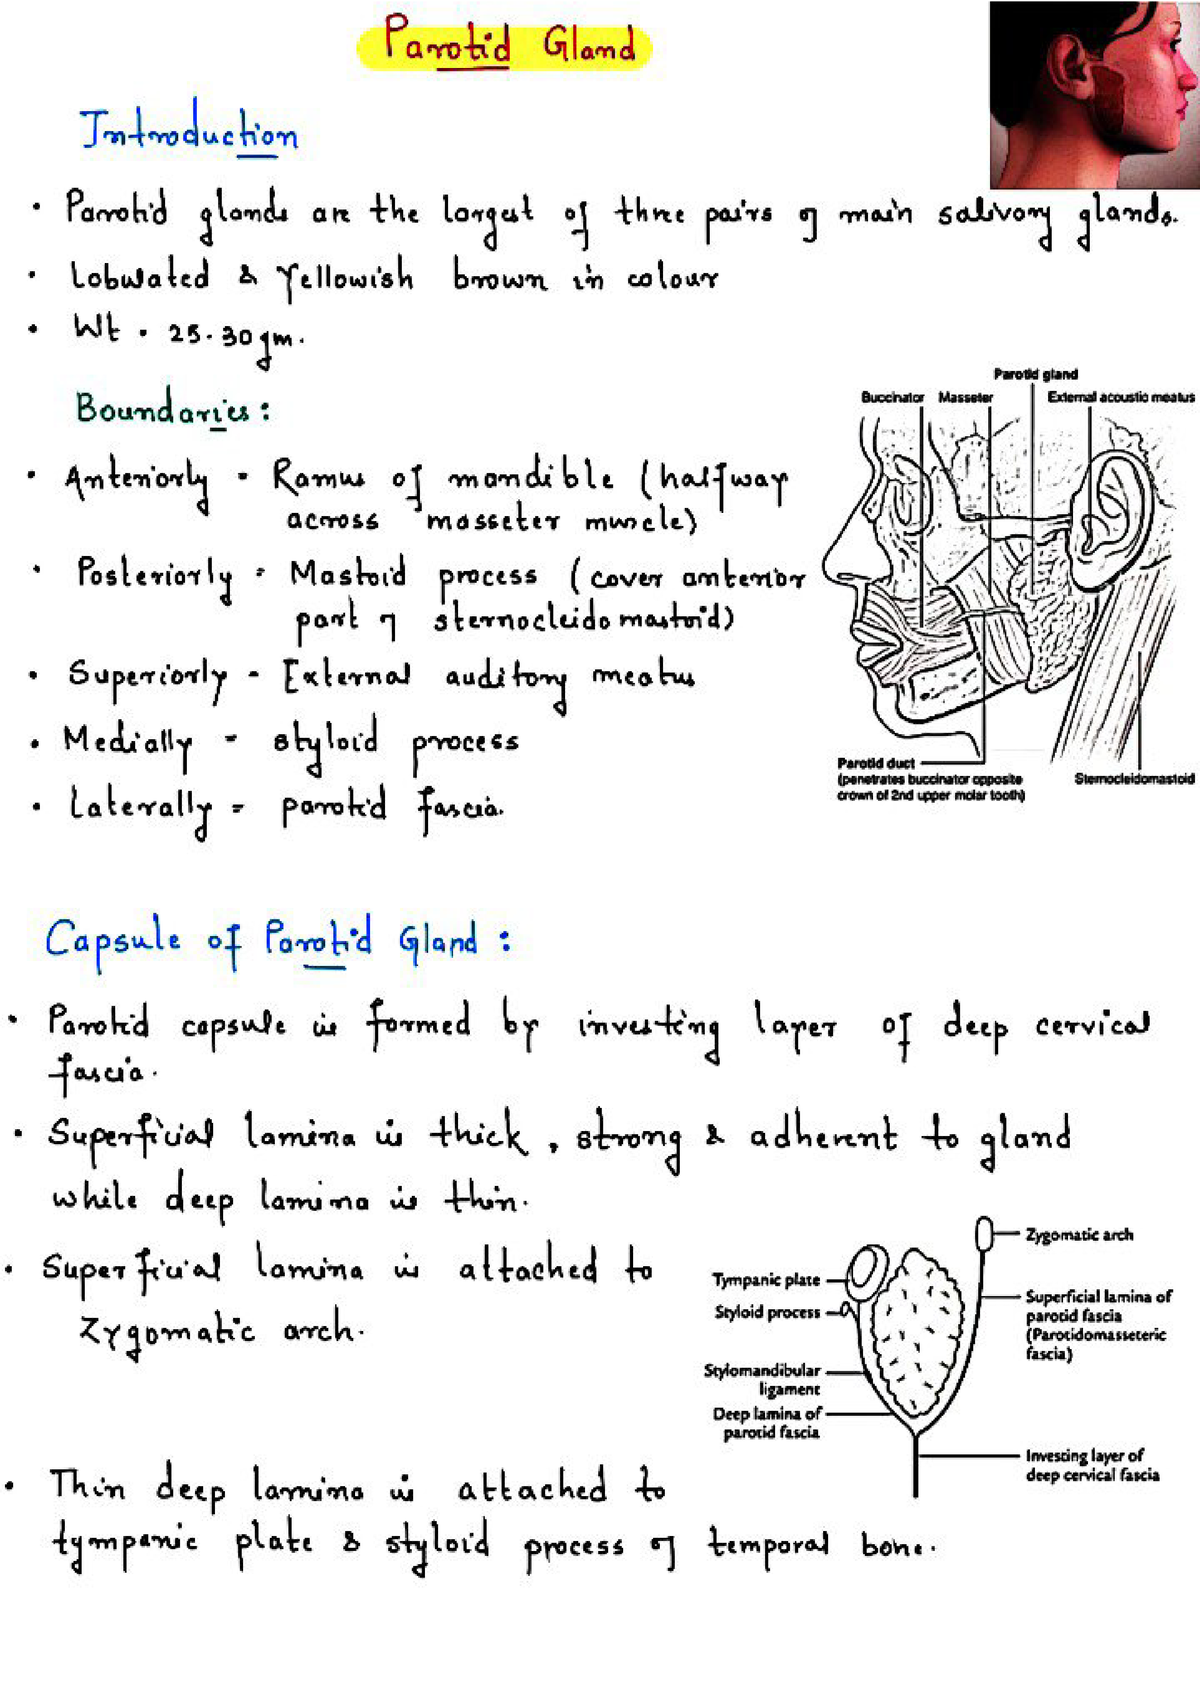 Parotid Gland
Introduction
• Parotid glands are the largest of three pairs of main salivary glands.
• Lobulated & Yellowish brown in colour
• Wt - 25-30gm.
Boundaries :
• Anteriorly - Ramus of mandible (halfway
across masseter muscle)
• Posteriorly - Mastoid process (cover anterior
part of sternocleidomastoid)
• Superiorly - External auditory meatus
• Medially - styloid process
• Laterally - parotid fascia.
Parotid gland
Buccinator Masseter External acoustic meatus
Parotid duct
(penetrates buccinator opposite
crown of 2nd upper molar tooth)
Sternocleidomastoid
Capsule of Parotid Gland :
• Parotid capsule is formed by investing layer of deep cervical
fascia.
• Superficial lamina is thick, strong & adherent to gland
while deep lamina is thin.
• Superficial lamina is attached to
Zygomatic arch.
Tympanic plate
Styloid process
Stylomandibular
ligament
Deep lamina of
parotid fascia
Zygomatic arch
Superficial lamina of
parotid fascia
(Parotidomasseteric
fascia)
Investing layer of
deep cervical fascia
• Thin deep lamina is attached to
tympanic plate & styloid process of temporal bone.